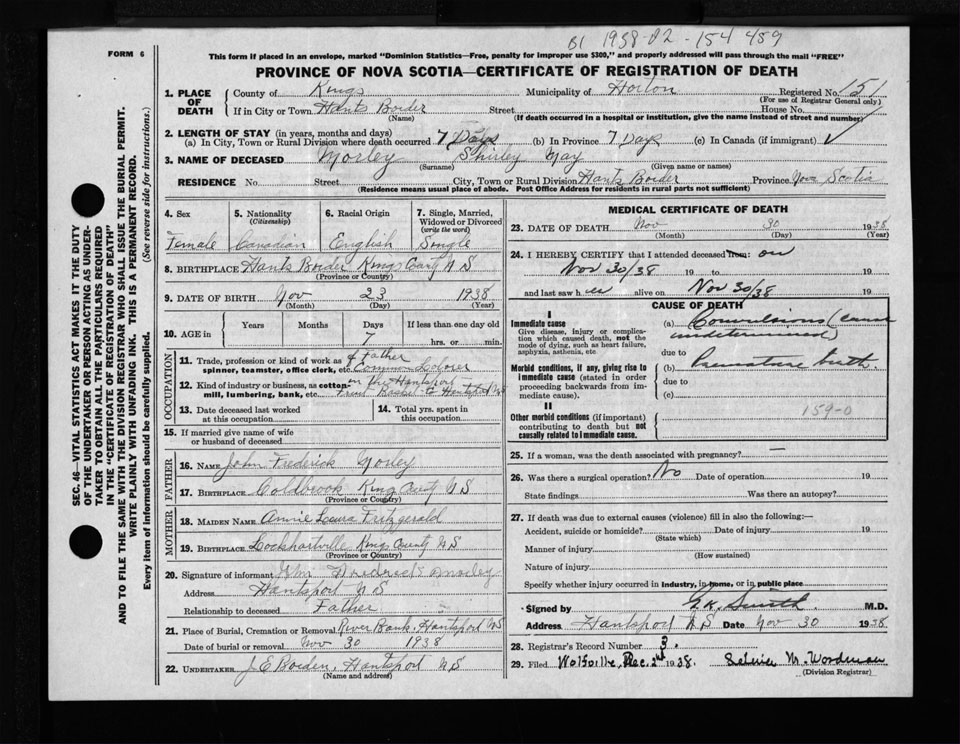 B1 1938-02-154459
FORM 6
This form if placed in an envelope, marked "Dominion Statistics—Free, penalty for improper use $300," and properly addressed will pass through the mail "FREE"
PROVINCE OF NOVA SCOTIA—CERTIFICATE OF REGISTRATION OF DEATH
SEC. 46—VITAL STATISTICS ACT MAKES IT THE DUTY
OF THE UNDERTAKER OR PERSON ACTING AS UNDER-
TAKER TO OBTAIN ALL THE PARTICULARS REQUIRED
IN THE "CERTIFICATE OF REGISTRATION OF DEATH"
AND TO FILE THE SAME WITH THE DIVISION REGISTRAR WHO SHALL ISSUE THE BURIAL PERMIT.
WRITE PLAINLY WITH UNFADING INK. THIS IS A PERMANENT RECORD.
Every item of information should be carefully supplied. (See reverse side for instructions.)
1. PLACE OF DEATH County of Kings Municipality of Horton Registered No. 151
(For use of Registrar General only)
If in City or Town Hants Border Street House No.
(Name) (If death occurred in a hospital or institution, give the name instead of street and number)
2. LENGTH OF STAY (in years, months and days)
(a) In City, Town or Rural Division where death occurred 7 Days (b) In Province 7 Days (c) In Canada (if immigrant) ✓
3. NAME OF DECEASED Morley Shirley May
(Surname) (Given name or names)
RESIDENCE No. Street City, Town or Rural Division Hants Border Province Nova Scotia
(Residence means usual place of abode. Post Office Address for residents in rural parts not sufficient)
4. Sex 5. Nationality 6. Racial Origin 7. Single, Married,
(Citizenship) Widowed or Divorced
(write the word)
Female Canadian English Single
8. BIRTHPLACE Hants Border Kings County N S
(Province or Country)
9. DATE OF BIRTH Nov 23 1938
(Month) (Day) (Year)
10. AGE in Years Months Days If less than one day old
7 hrs. or min.
OCCUPATION
11. Trade, profession or kind of work as Father
spinner, teamster, office clerk, etc. Common Laborer
12. Kind of industry or business, as cotton- on the Hantsport
mill, lumbering, bank, etc. Fruit Basket Co Hantsport NS
13. Date deceased last worked 14. Total yrs. spent in
at this occupation this occupation
15. If married give name of wife
or husband of deceased
FATHER
16. NAME John Frederick Morley
17. BIRTHPLACE Coldbrook Kings County N S
(Province or Country)
MOTHER
18. MAIDEN NAME Annie Laura Fitzgerald
19. BIRTHPLACE Lockhartville Kings County N S
(Province or Country)
20. Signature of informant Frederick Morley
Address Hantsport N S
Relationship to deceased Father
21. Place of Burial, Cremation or Removal River Bank, Hantsport NS
Date of burial or removal Nov 30 1938
22. UNDERTAKER J. E Borden, Hantsport N S
(Name and address)
MEDICAL CERTIFICATE OF DEATH
23. DATE OF DEATH Nov 30 1938
(Month) (Day) (Year)
24. I HEREBY CERTIFY that I attended deceased from: on
Nov 30/38 19 to 19
and last saw her alive on Nov 30/38 19
CAUSE OF DEATH
I
Immediate cause
Give disease, injury or complica-
tion which caused death, not the
mode of dying, such as heart failure,
asphyxia, asthenia, etc
(a) Convulsions (cause
undetermined)
due to
Morbid conditions, if any, giving rise to
immediate cause (stated in order
proceeding backwards from im-
mediate cause).
(b) Premature birth.
due to
(c)
II
Other morbid conditions (if important)
contributing to death but not
causally related to immediate cause.
159-0
25. If a woman, was the death associated with pregnancy? —
26. Was there a surgical operation? No Date of operation 19
State findings Was there an autopsy?
27. If death was due to external causes (violence) fill in also the following:—
Accident, suicide or homicide? Date of injury 19
(State which)
Manner of injury
(How sustained)
Nature of injury
Specify whether injury occurred in industry, in home, or in public place
Signed by Smith M.D.
Address Hantsport N S Date Nov 30 1938
28. Registrar's Record Number 3.
29. Filed Wolfville, Dec. 2nd 1938. M. Woodman
(Division Registrar)